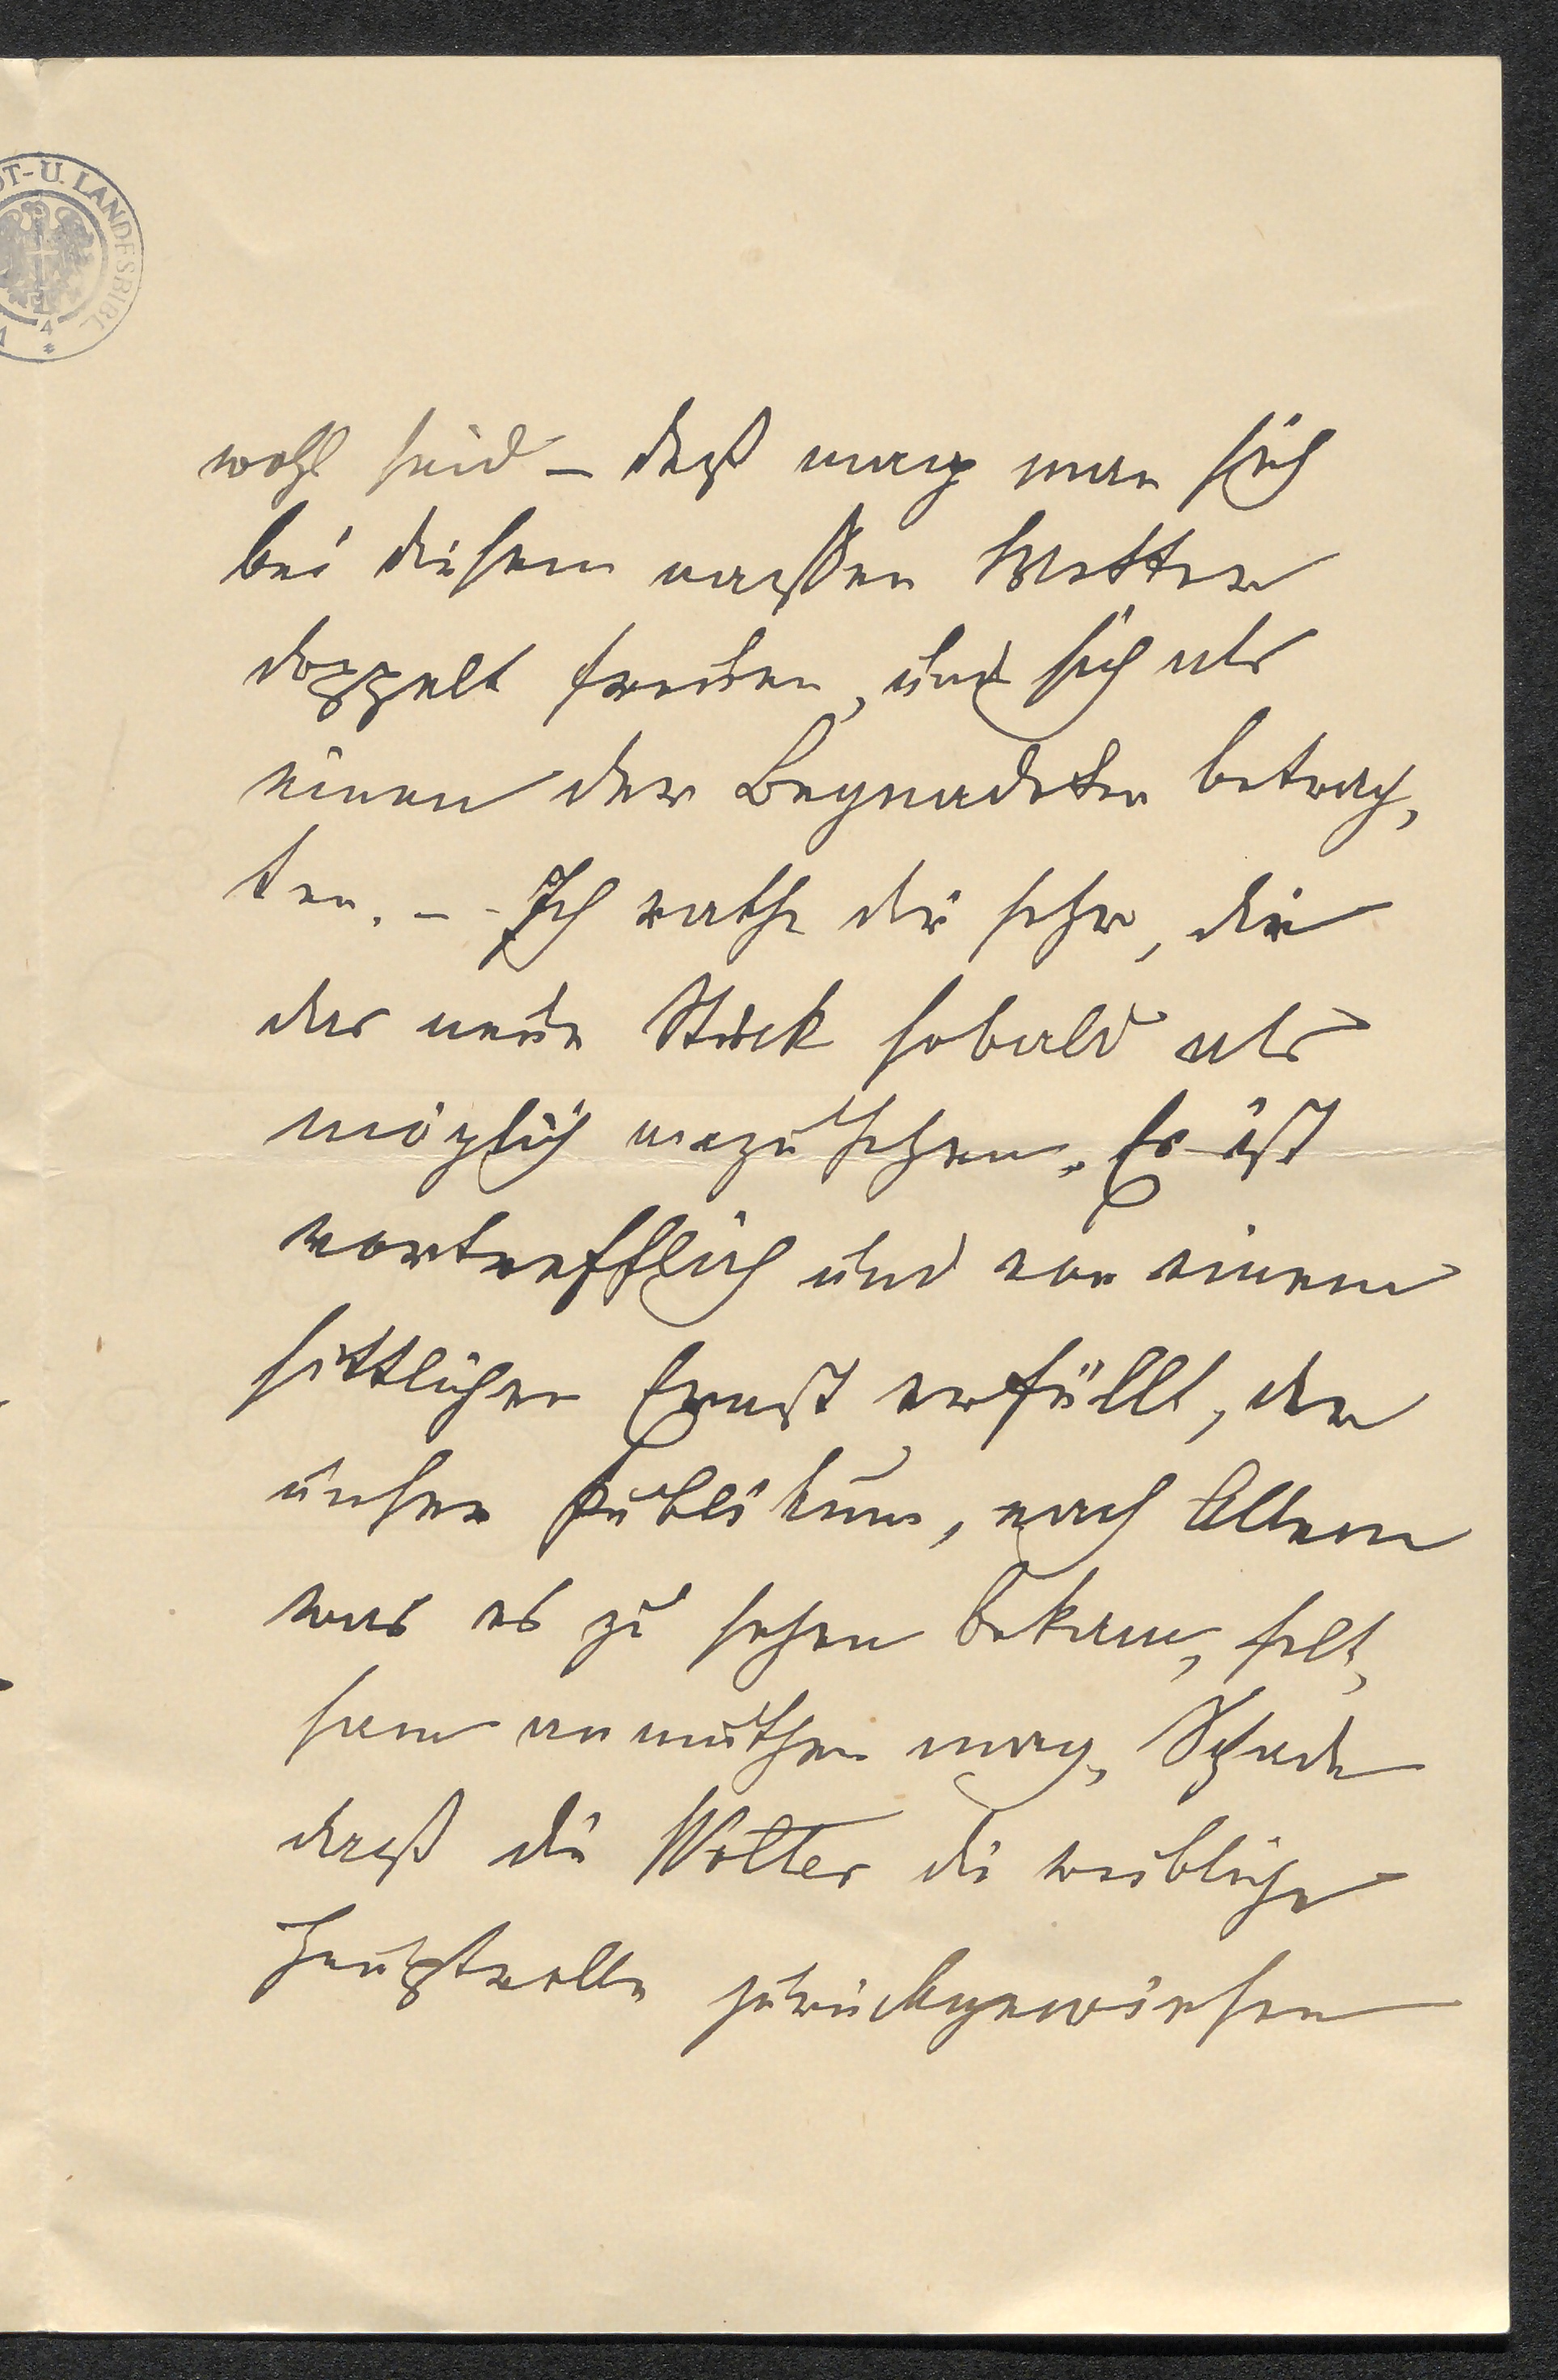 DT-U. LANDESBIBL.
wohl seid – deß mag man sich
bei diesem nassen Wetter
doppelt freuen, und sich als
einen der Begnadeten betrach-
ten. – Ich rathe dir sehr, dir
das neue Stück sobald als
möglich anzusehen. Es ist
vortrefflich und von einem
sittlichen Ernst erfüllt, der
unser Publikum, nach Allem
was es zu sehen bekam, selt-
sam anmuthen mag. Schade
daß die Wolter die weibliche
Hauptrolle zurückgewiesen